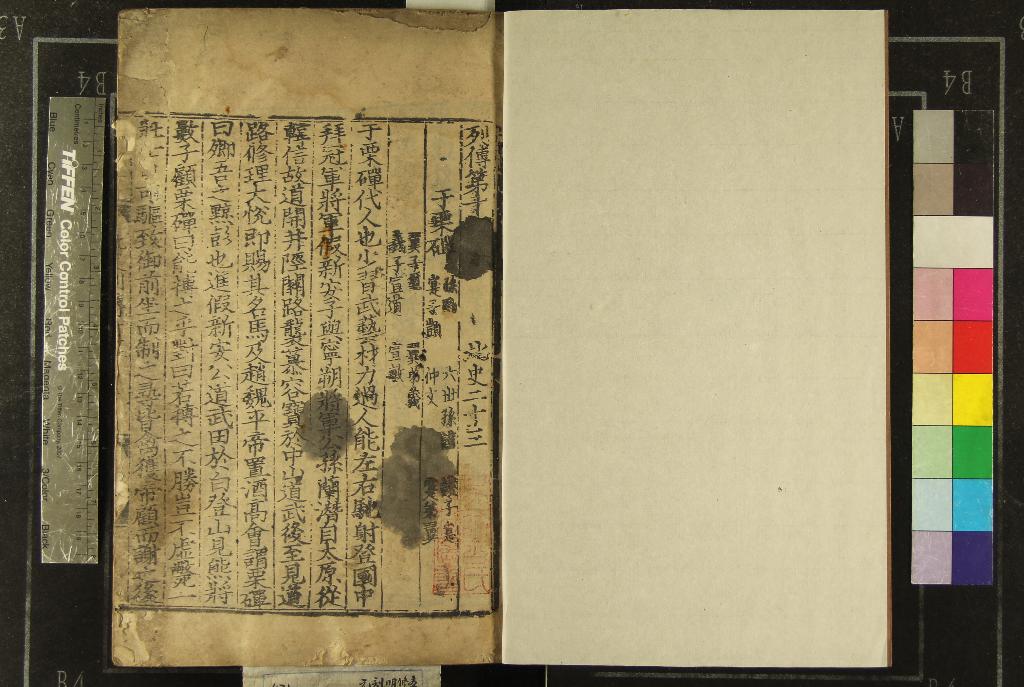 列傳第十
北史二十三
于栗磾
六世孫謹
謹子寔
寔子顗
仲文
寔弟翼
翼子璽
翼弟義
義子宣道
宣敏
于栗磾代人也少習武藝材力過人能左右馳射登國中
拜冠軍將軍假新安子與寧朔將軍公孫蘭潛自太原從
韓信故道開井陘關路襲慕容寶於中山道武後至見道
路修理大悅即賜其名馬及趙魏平帝置酒高會謂栗磾
曰卿吾之黥彭也進假新安公道武田於白登山見熊將
數子顧栗磾曰能搏之乎對曰若搏之不勝豈不虛斃一
驅致御前坐而制之尋皆禽獲帝顧而謝之後
TIFFEN Color Control Patches
Blue
Cyan
Green
Yellow
Red
Magenta
White
3/Color
Black
Centimetres
Inches
A3
B4
B4
A
B4
B4